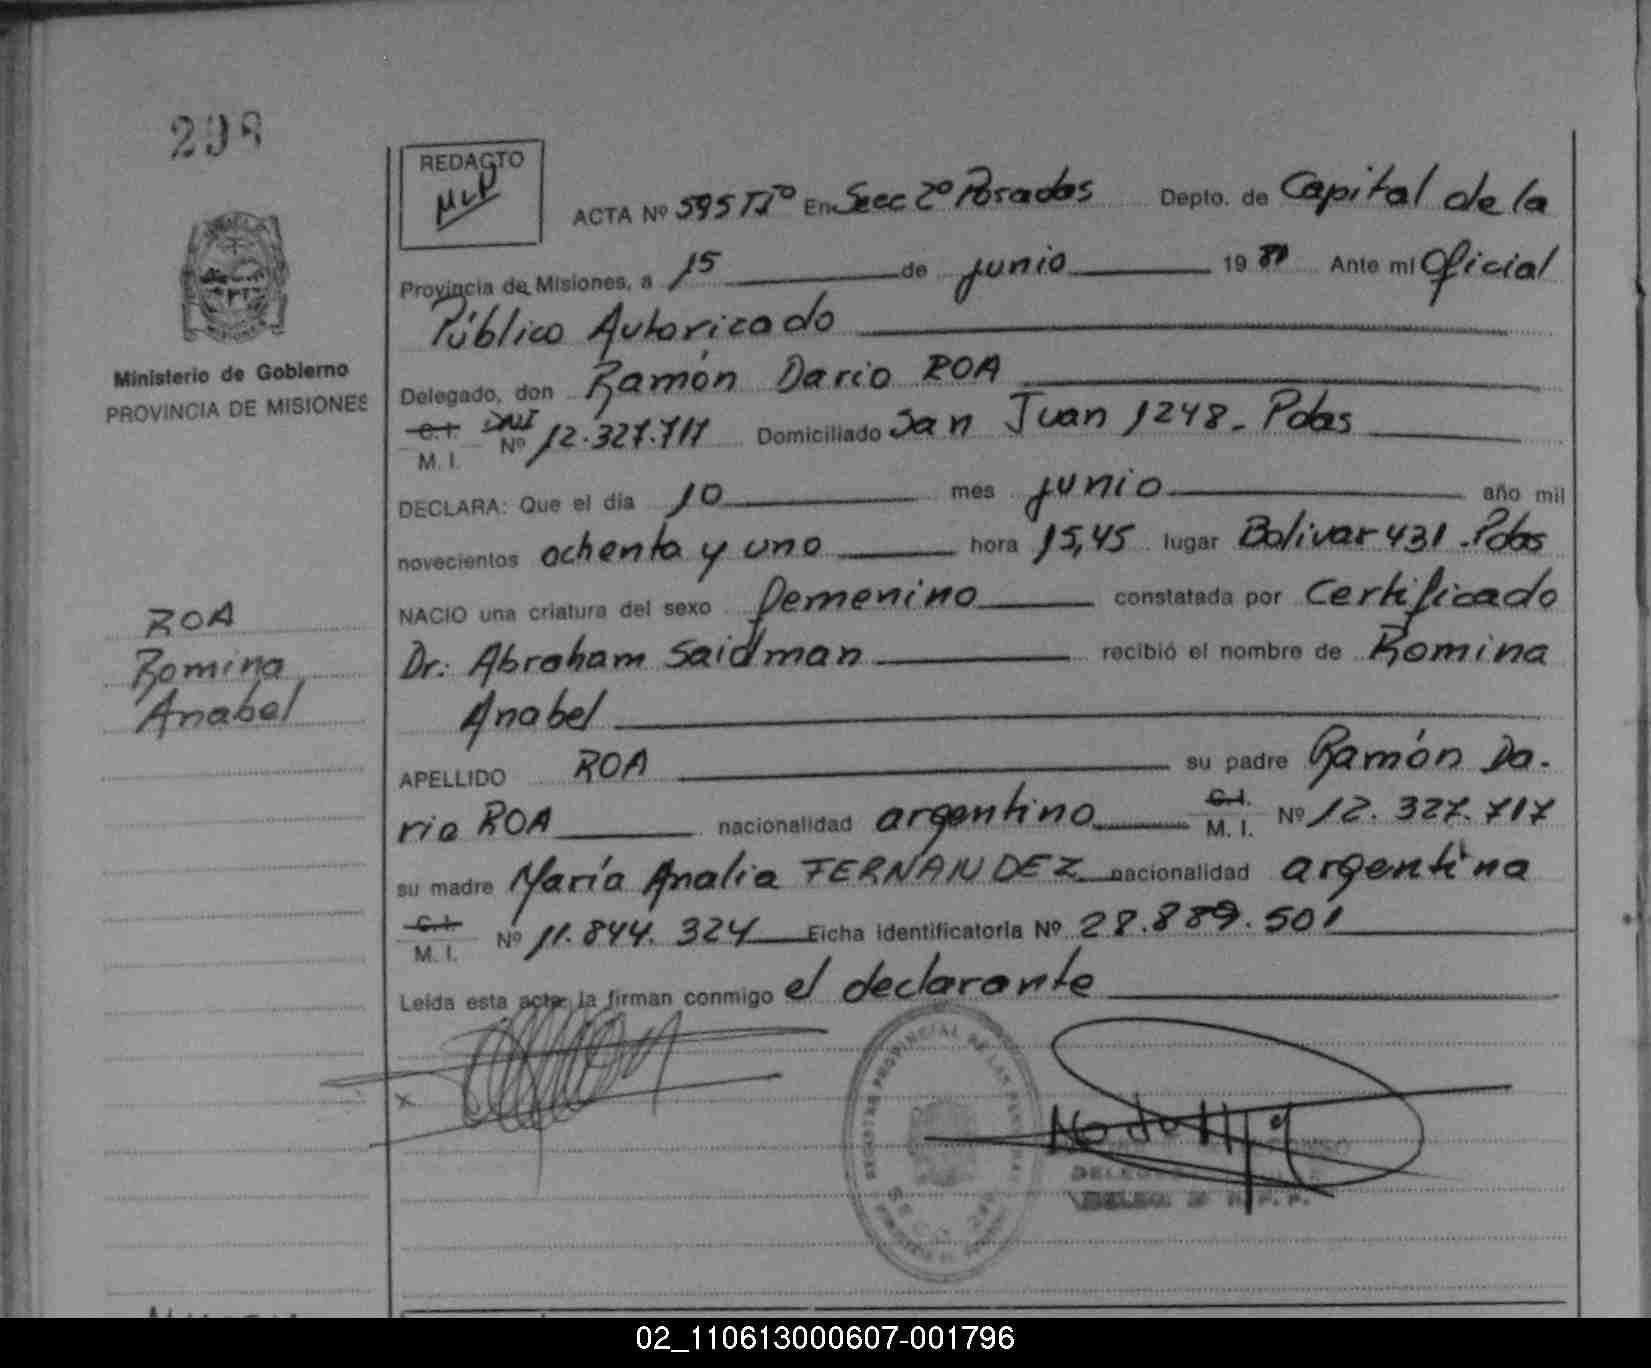 298
REDACTO
ACTA Nº 595 Tº En Secc 2º Posadas Depto. de Capital de la
Provincia de Misiones, a 15 de junio 19 81 Ante mi Oficial
Público Autoricado
Ministerio de Gobierno
PROVINCIA DE MISIONES
Delegado, don Ramón Dario ROA
C.I. DNI
M. I. Nº 12.327.717 Domiciliado San Juan 1248 - Pdas
DECLARA: Que el día 10 mes junio año mil
novecientos ochenta y uno hora 15,45 lugar Bolivar 431 - Pdas
NACIO una criatura del sexo Femenino constatada por Certificado
Dr: Abraham Saidman recibió el nombre de Romina
Anabel
ROA
Romina
Anabel
APELLIDO ROA su padre Ramón Da-
rio ROA nacionalidad argentino C.I. M. I. Nº 12.327.717
su madre María Analia FERNANDEZ nacionalidad argentina
C.I. M. I. Nº 11.844.324 Ficha identificatoria Nº 28.889.501
Leída esta acta, la firman conmigo el declarante
REGISTRO PROVINCIAL DE LAS PERSONAS
02_110613000607-001796